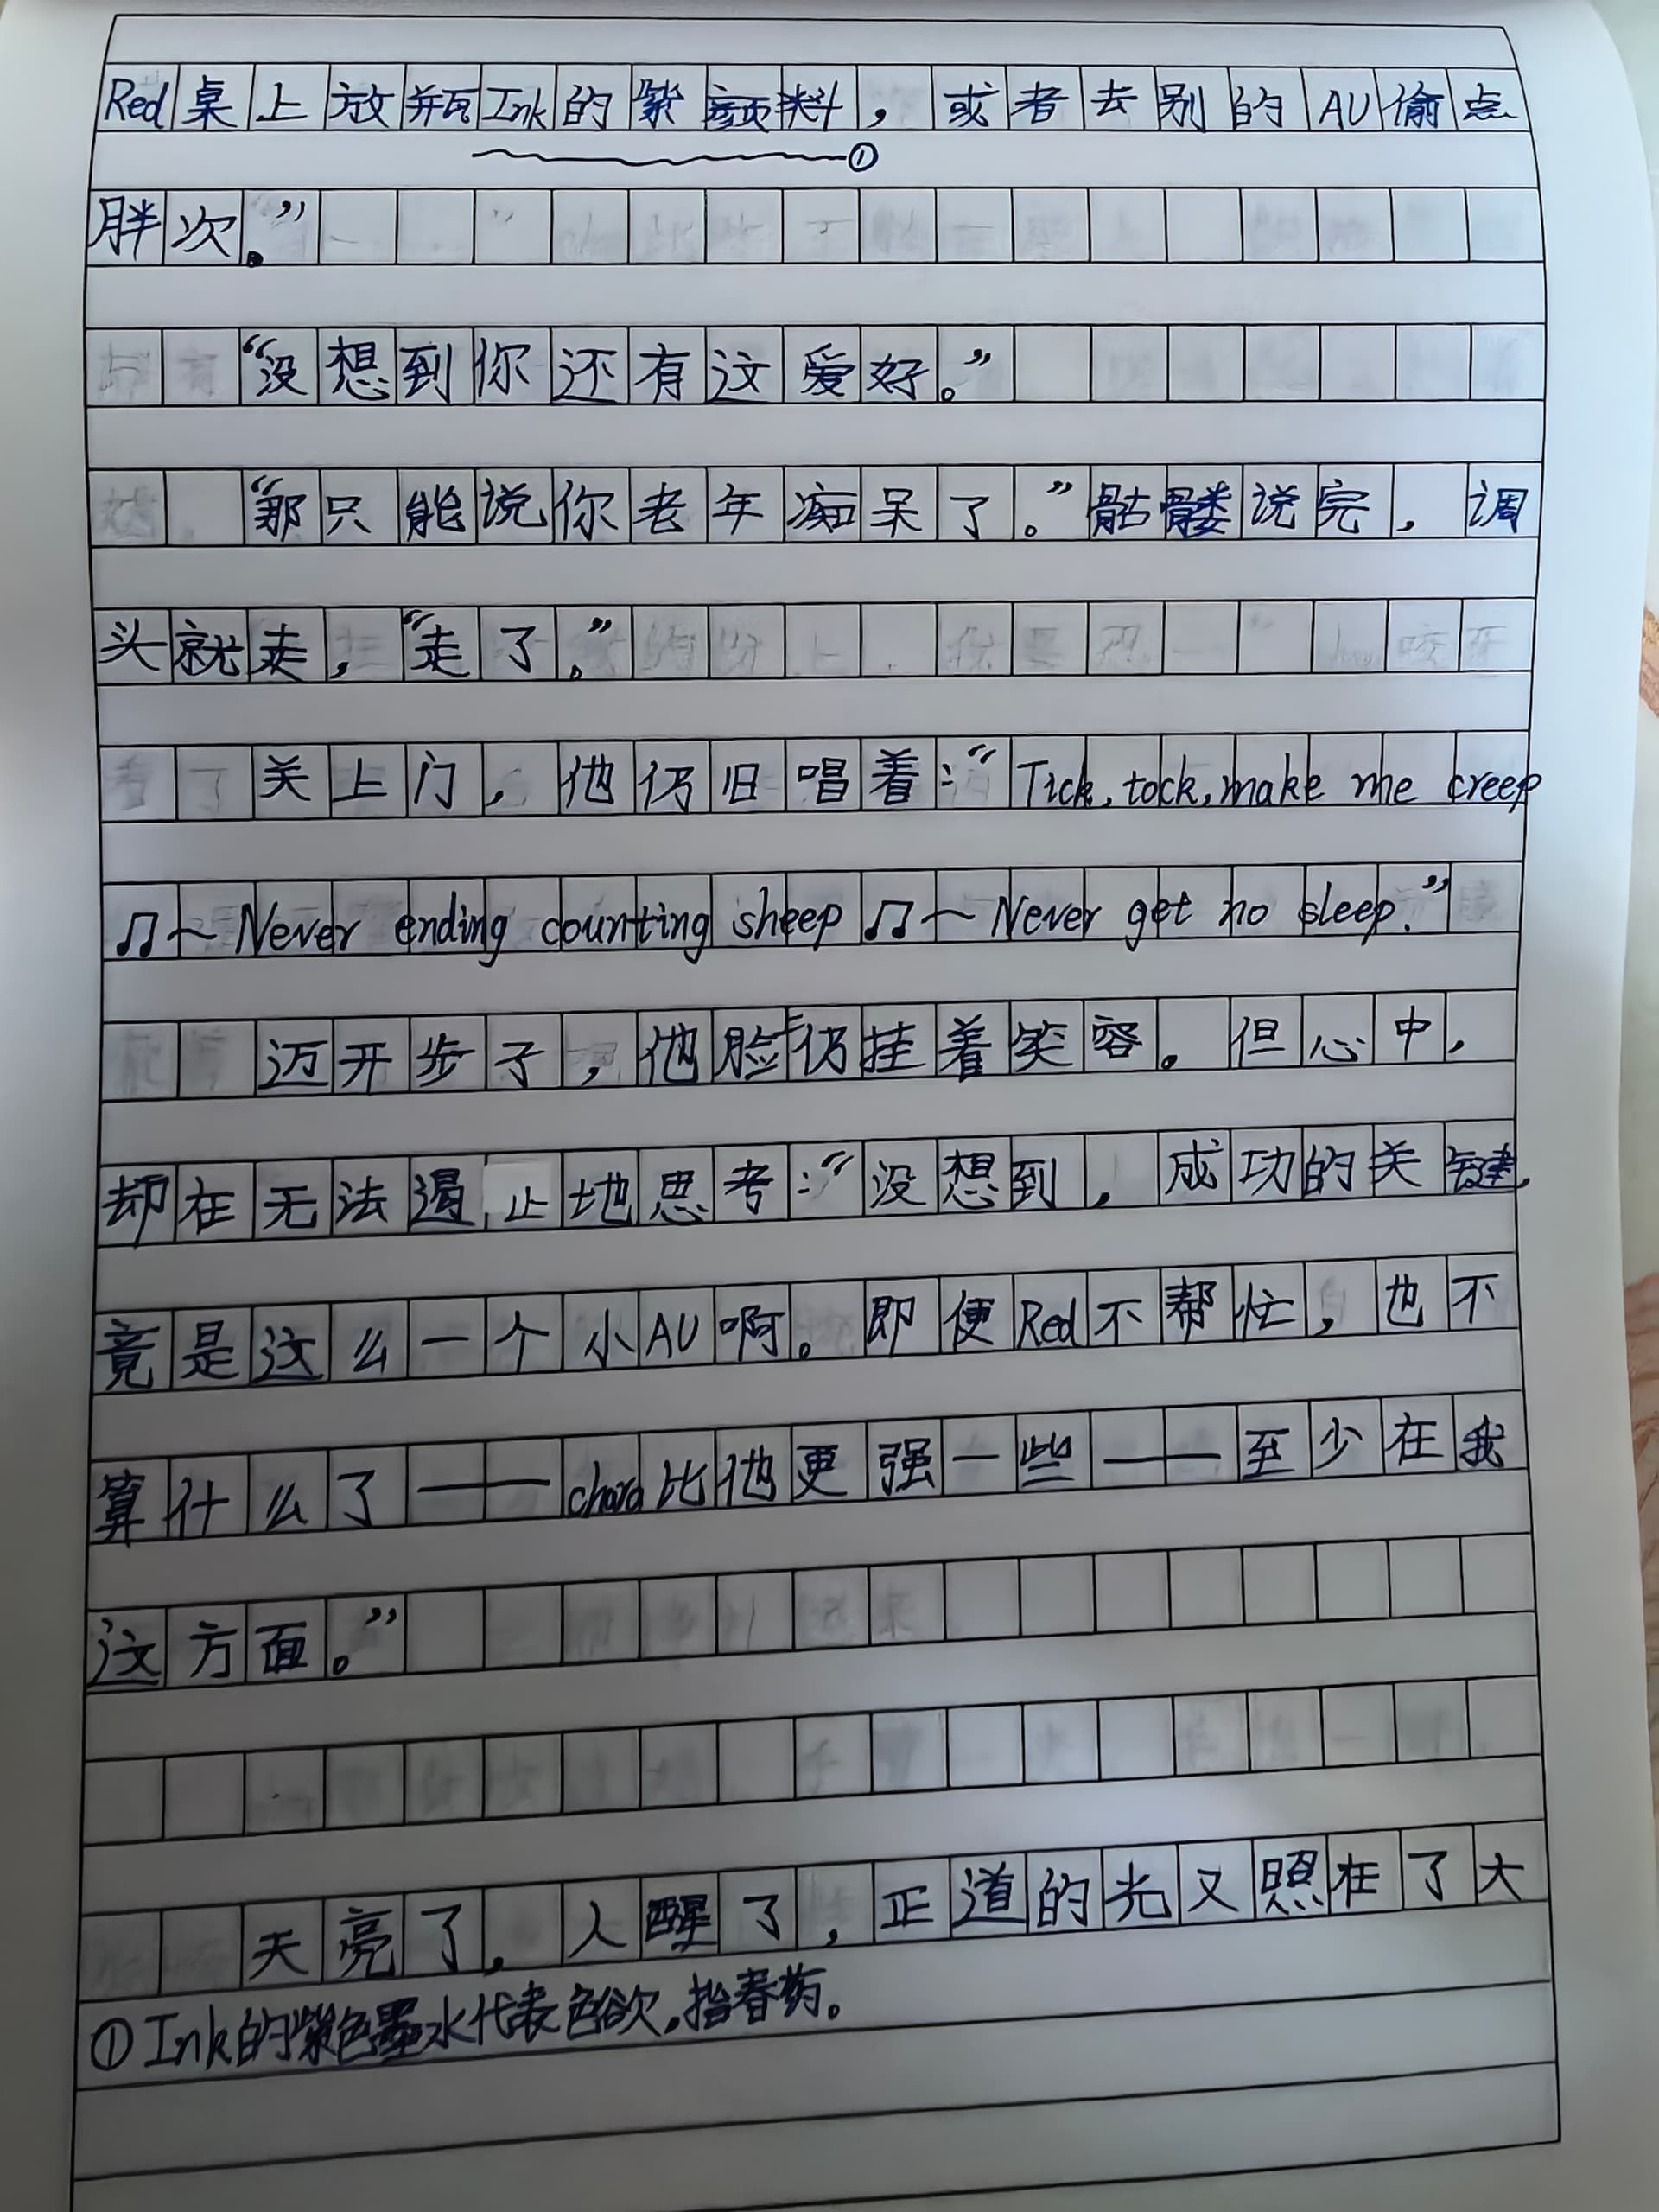 Red桌上放瓶Ink的紫颜料，或者去别的AU偷点
①
胖次。”
“没想到你还有这爱好。”
“那只能说你老年痴呆了。”骷髅说完，调
头就走，“走了。”
关上门，他仍旧唱着：“Tick, tock, make me creep
♫～Never ending counting sheep ♫～Never get no sleep.”
迈开步子，他脸上仍挂着笑容。但心中，
却在无法遏止地思考：“没想到，成功的关键，
竟是这么一个小AU啊。即便Red不帮忙，也不
算什么了——chara比他更强一些——至少在我
这方面。”
天亮了，人醒了，正道的光又照在了大
①Ink的紫色墨水代表色欲，指春药。